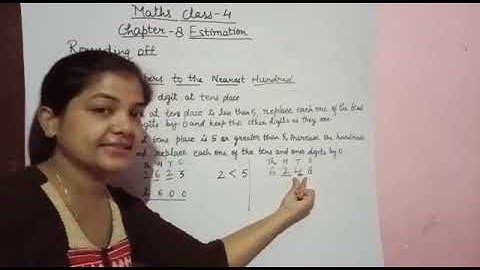 Maths class-4
Chapter-8 Estimation
Rounding off
bers to the Nearest Hundred
digit at tens place
at tens place is less than 5, replace each one of the tens
digits by 0 and keep the other digits as they are.
t tens place is 5 or greater than 5, increase the hundreds
and replace each one of the tens and ones digits by 0
H T Th H T
6 2 3 2 < 5 6 2 4 8
2 6 0 0